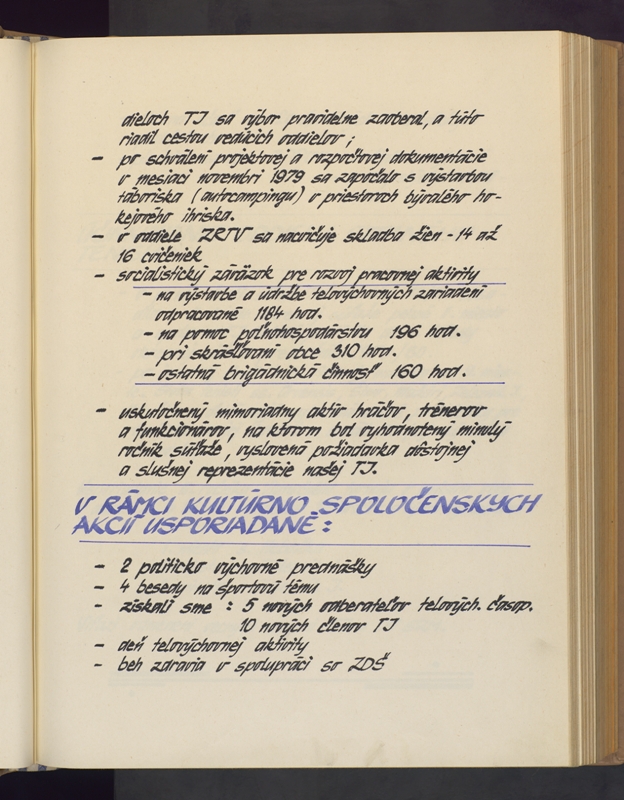 dieloch TJ sa výbor pravidelne zaoberal, a túto
riadil cestou vedúcich oddielov;
- po schválení projektovej a rozpočtovej dokumentácie
v mesiaci novembri 1979 sa započalo s výstavbou
táboriska (autocampingu) v priestoroch bývalého ho-
kejového ihriska.
- v oddiele ZRTV sa nacvičuje skladba žien - 14 až
16 cvičeniek
- socialistický záväzok pre rozvoj pracovnej aktivity
- na výstavbe a údržbe telovýchovných zariadení
odpracované 1184 hod.
- na pomoc poľnohospodárstvu 196 hod.
- pri skrášľovaní obce 310 hod.
- ostatná brigádnická činnosť 160 hod.
- uskutočnený mimoriadny aktív hráčov, trénerov
a funkcionárov, na ktorom bol vyhodnotený minulý
ročník súťaže, vyslovená požiadavka dôstojnej
a slušnej reprezentácie našej TJ.
V RÁMCI KULTÚRNO SPOLOČENSKYCH
AKCIÍ USPORIADANÉ:
- 2 politicko výchovné prednášky
- 4 besedy na športovú tému
- získali sme : 5 nových odberateľov telových. časop.
10 nových členov TJ
- deň telovýchovnej aktivity
- beh zdravia v spolupráci so ZDŠ